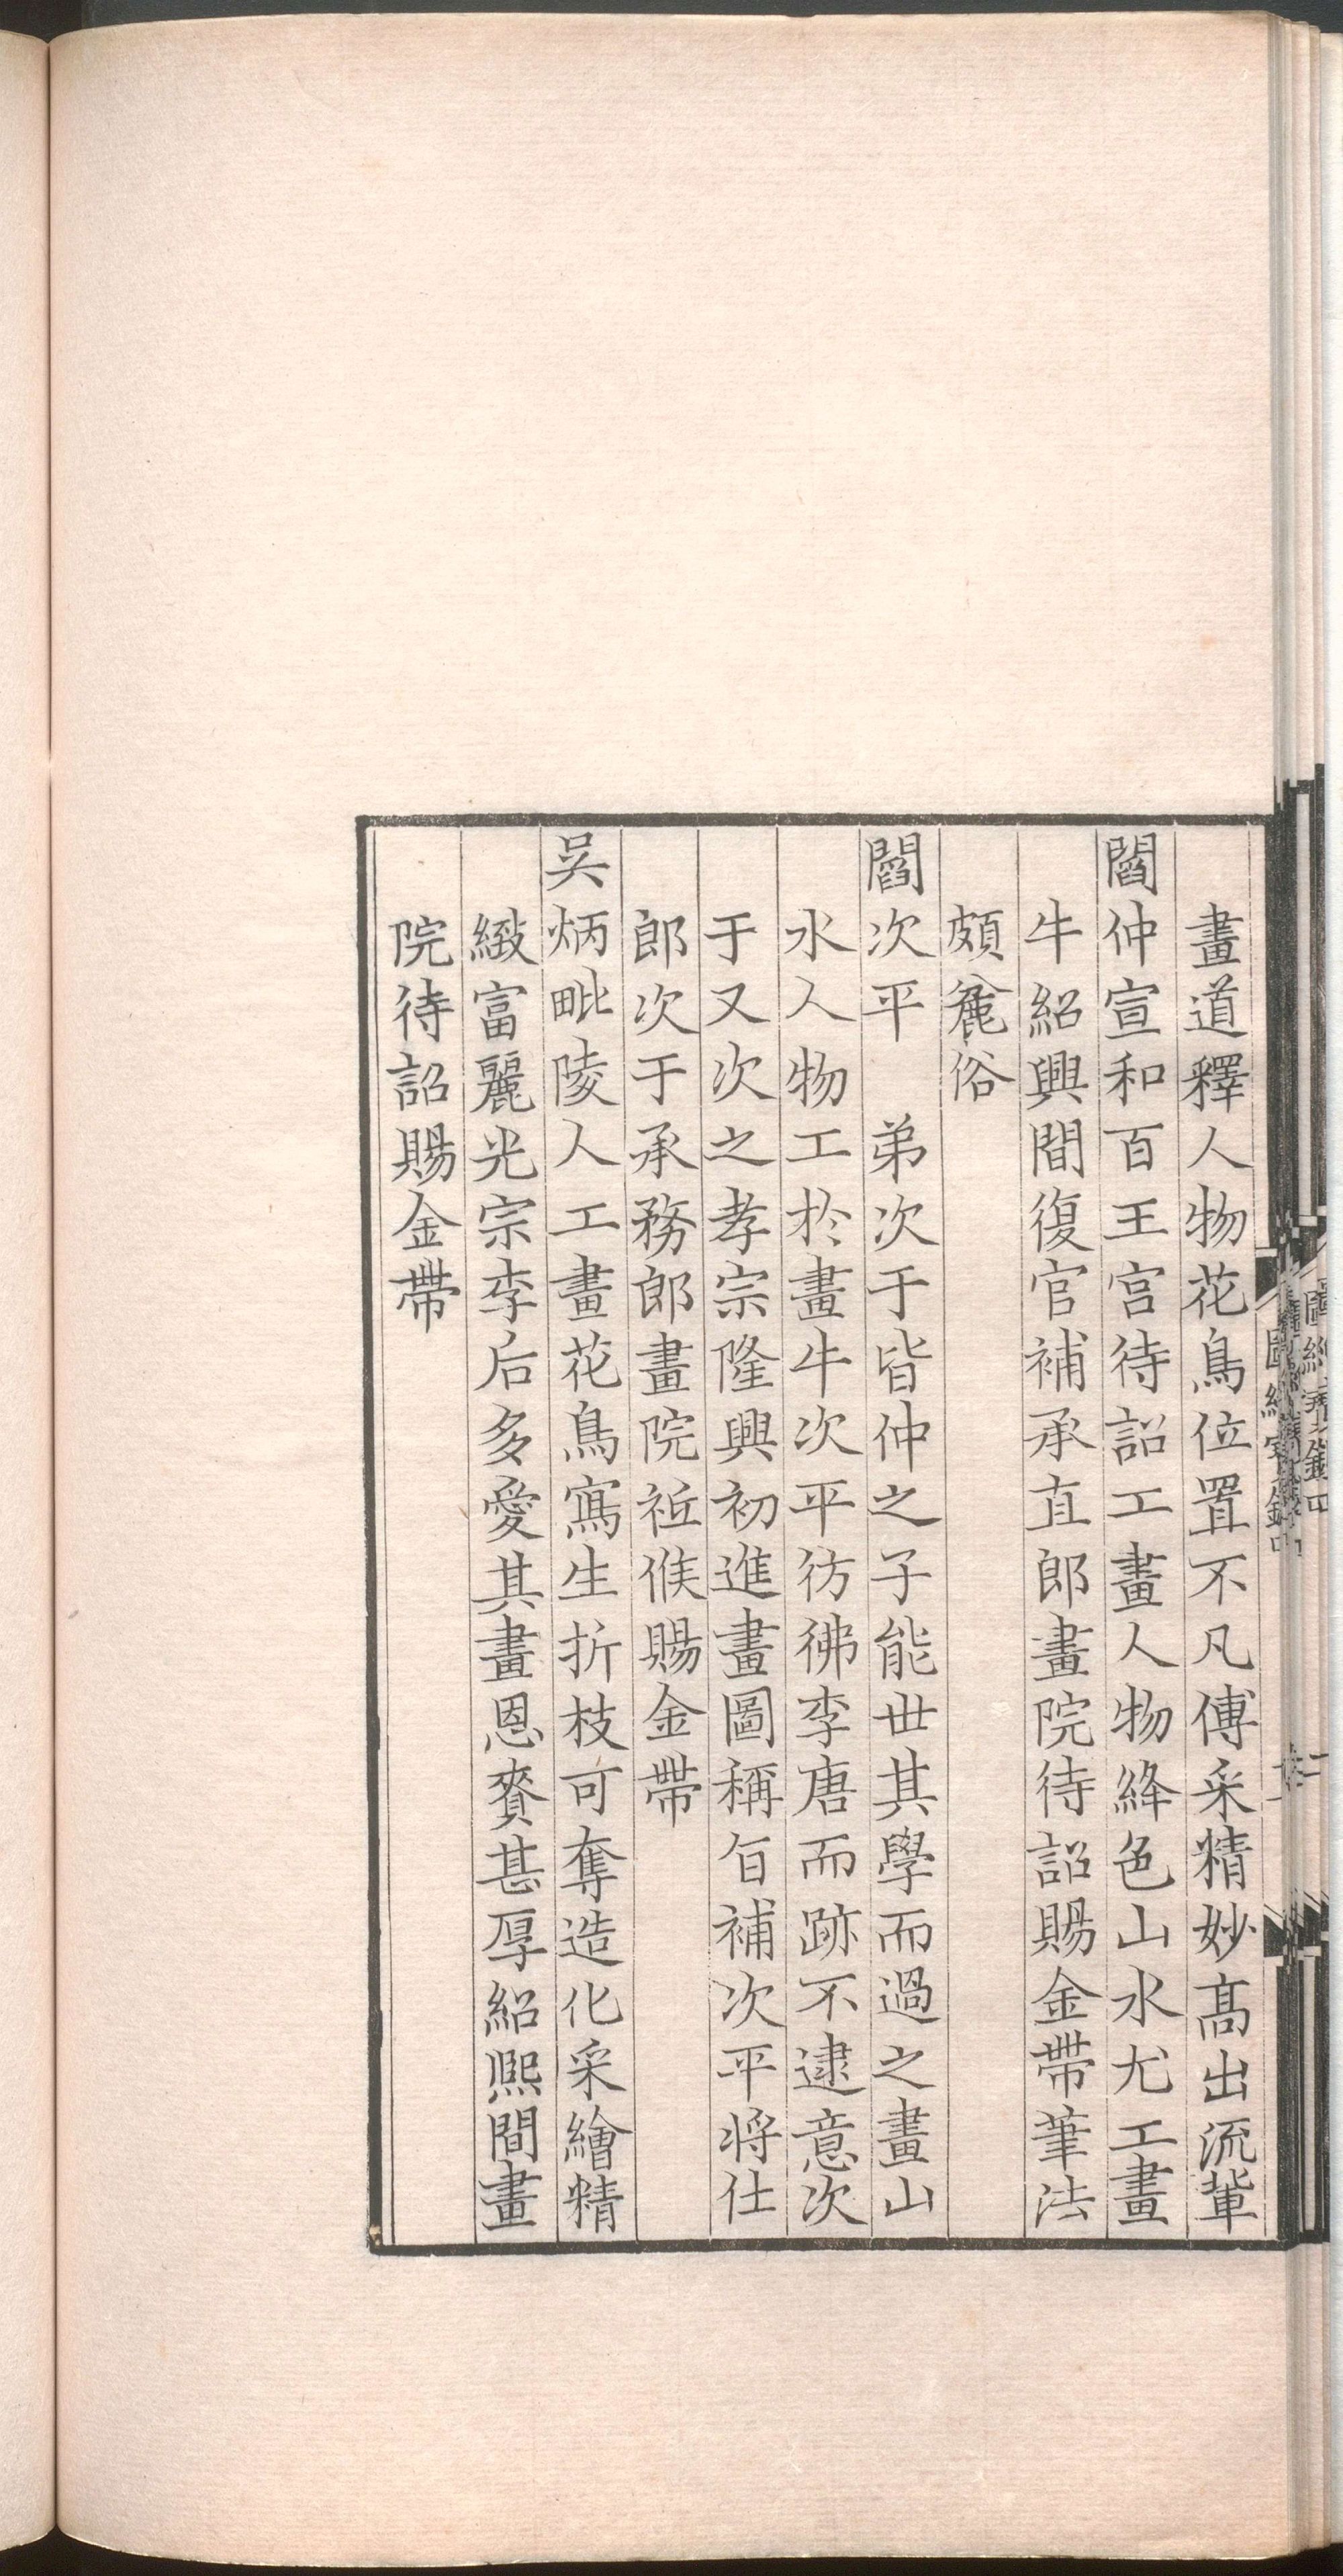 畫道釋人物花鳥位置不凡傅采精妙髙出流輩
閻仲宣和百王宫待詔工畫人物絳色山水尤工畫
牛紹興間復官補承直郎畫院待詔賜金帶筆法
頗麄俗
閻次平　弟次于皆仲之子能世其學而過之畫山
水人物工於畫牛次平彷彿李唐而跡不逮意次
于又次之孝宗隆興初進畫圖稱旨補次平将仕
郎次于承務郎畫院祗候賜金帶
吳炳毗陵人工畫花鳥寫生折枝可奪造化采繪精
緻富麗光宗李后多愛其畫恩賚甚厚紹熙間畫
院待詔賜金帶